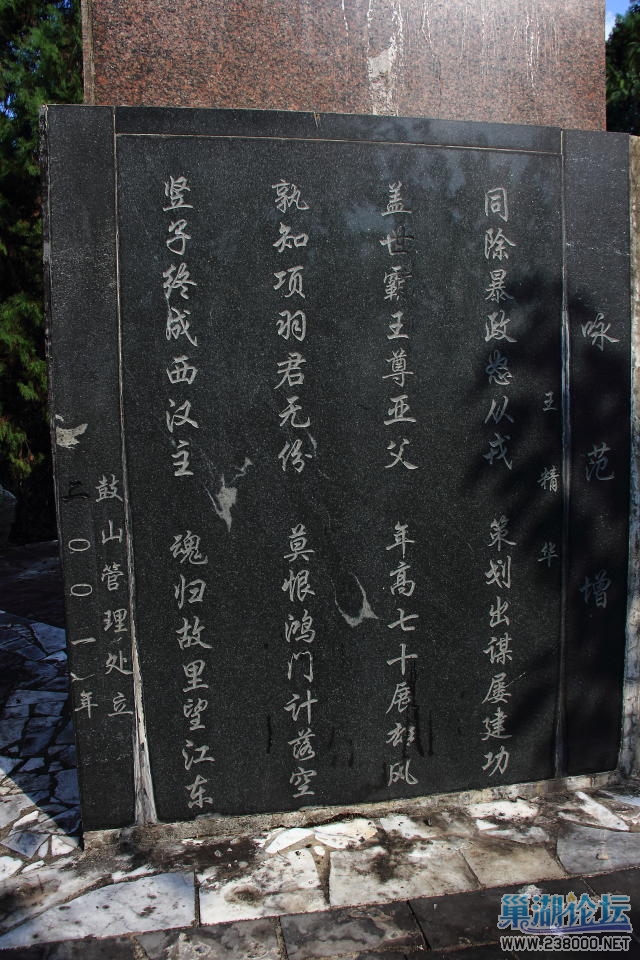 咏范增
王精华
同除暴政怒从戎 策划出谋屡建功
盖世霸王尊亚父 年高七十展雄风
孰知项羽君无份 莫恨鸿门计落空
竖子终成西汉主 魂归故里望江东
鼓山管理处立
二〇〇一年
巢湖论坛
WWW.238000.NET